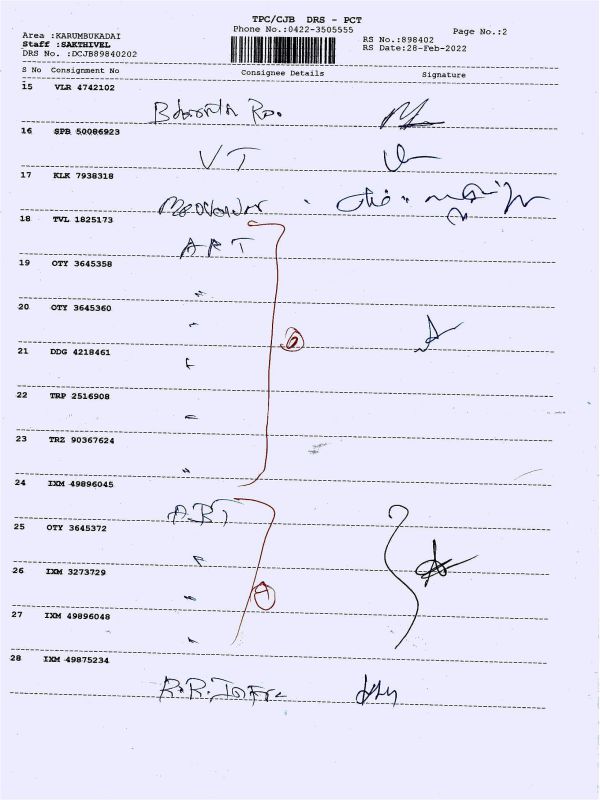 TPC/CJB DRS - PCT
Phone No.:0422-3505555
Page No.:2
Area :KARUMBUKADAI
Staff :SAKTHIVEL
DRS No. :DCJB89840202
RS No.:898402
RS Date:28-Feb-2022
S No Consignment No Consignee Details Signature
15 VLR 4742102
16 SPB 50086923
VT
17 KLK 7938318
18 TVL 1825173
ART
19 OTY 3645358
"
20 OTY 3645360
"
21 DDG 4218461
"
6
22 TRP 2516908
"
23 TRZ 90367624
"
24 IXM 49896045
25 OTY 3645372
"
26 IXM 3273729
"
4
27 IXM 49896048
"
28 IXM 49875234